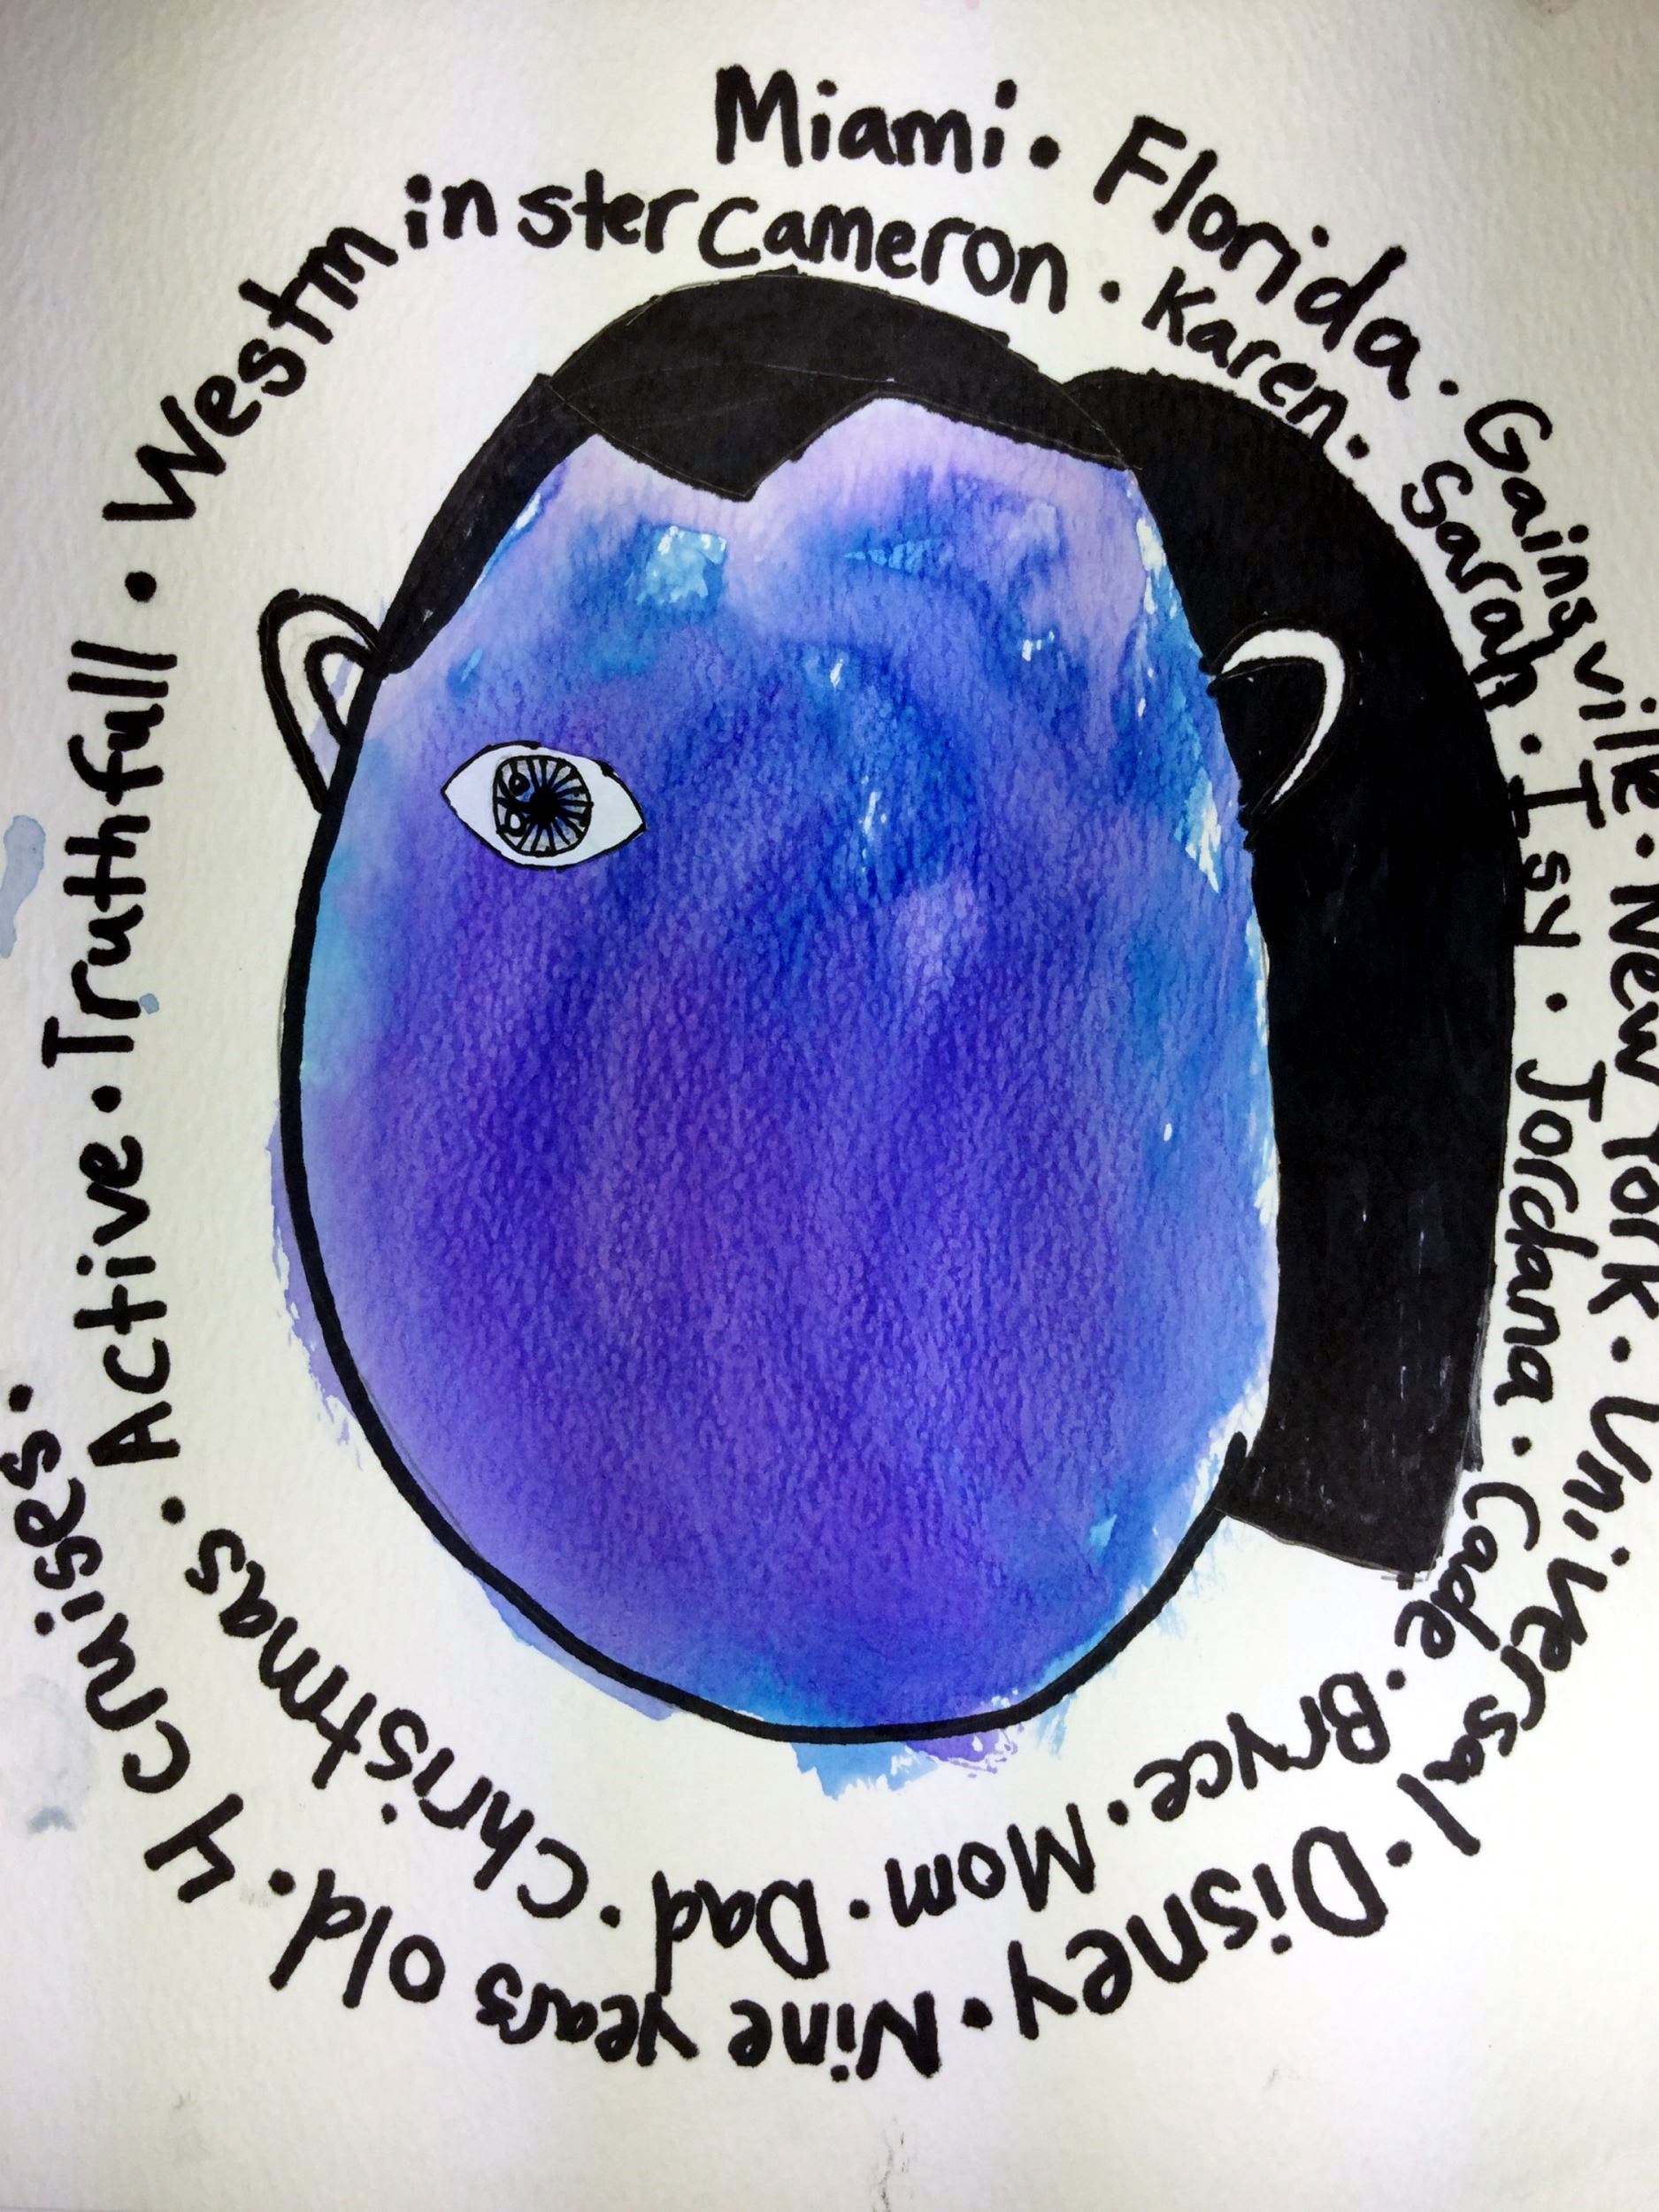 Miami. Florida. Gaingville. New York. Universal. Disney. Nine years old. 4 Cruises.
Cameron. Karen. Sarah. Isy. Jordana. Cade. Bryce. Mom. Dad. Christmas. Active. Truthfull. Westminster